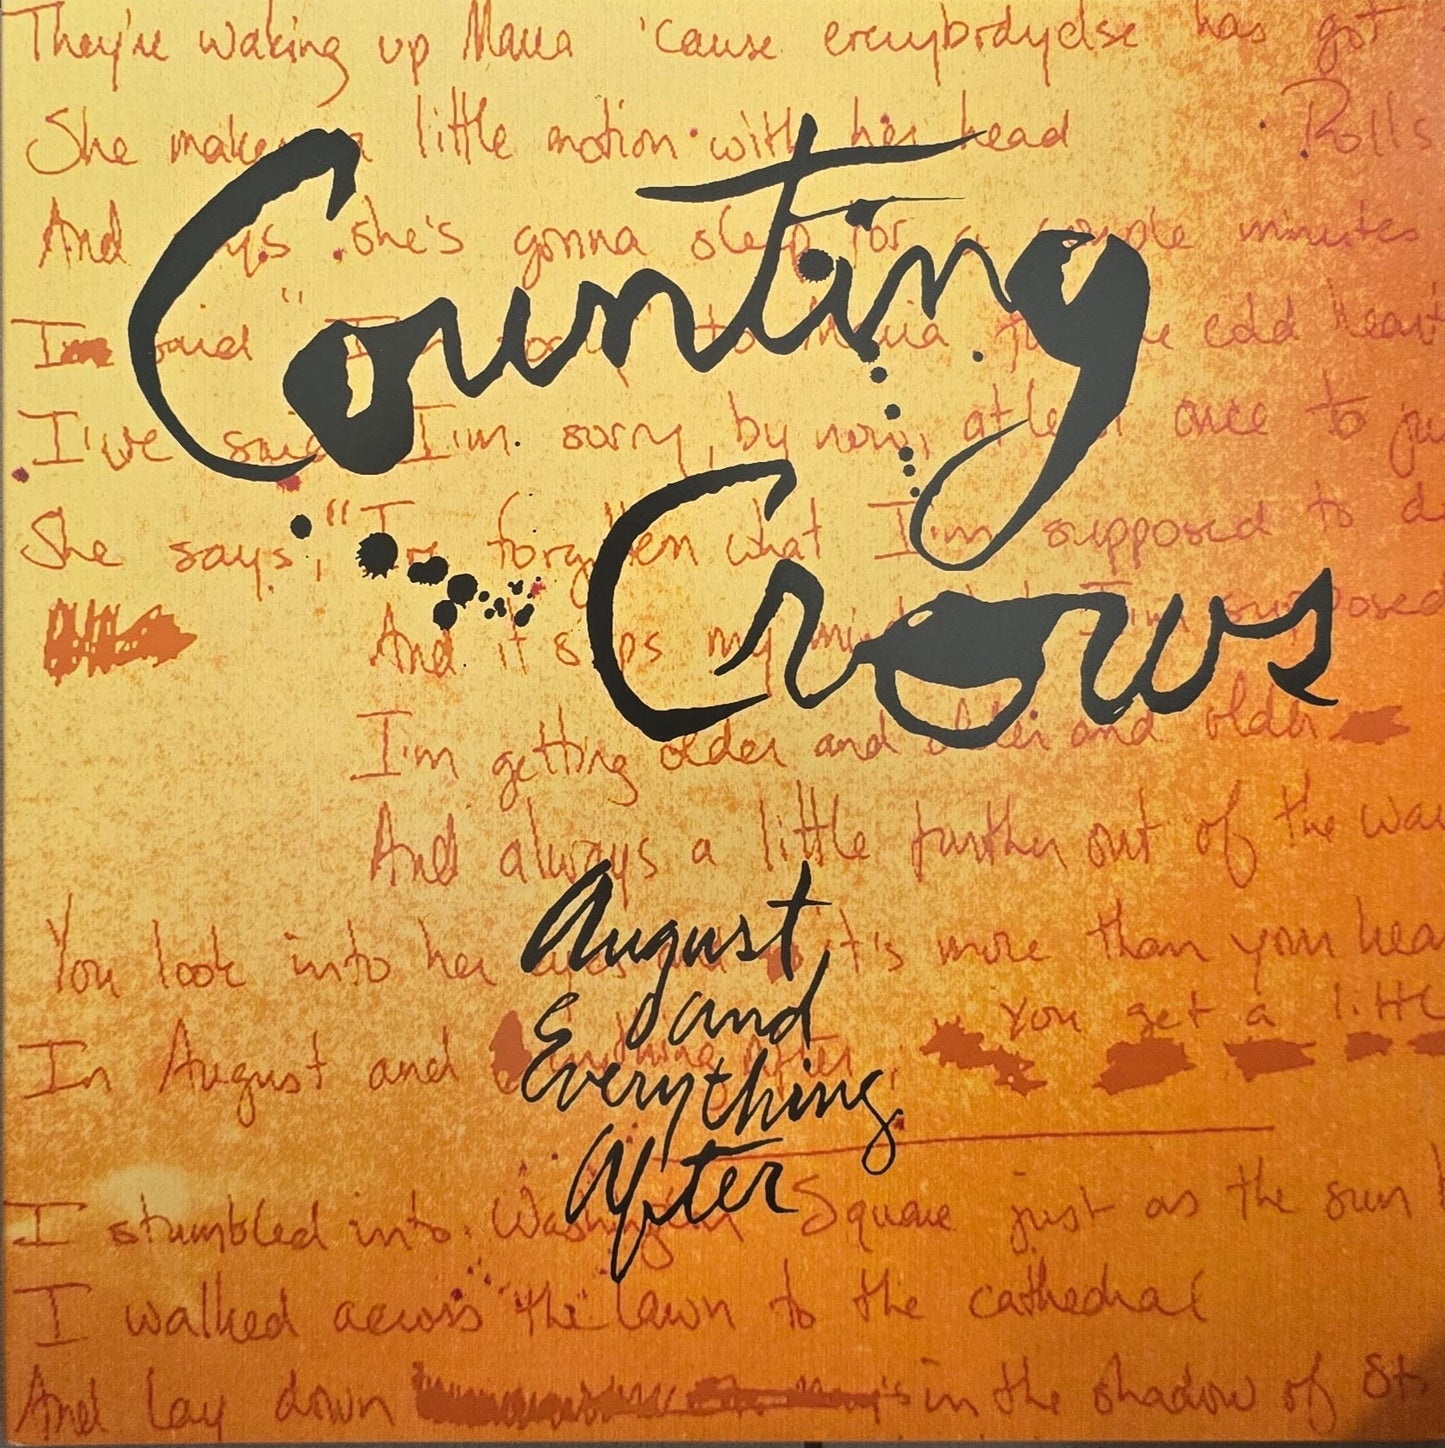 They're waking up Maria 'cause everybodyelse has got
She makes a little motion with her head
Rolls
And says she's gonna sleep for a couple minutes
Counting
I'm said "I'm sorry" to Maria for the cold heart
I've said I'm sorry, by now, at least once to ju
She says, "I've forgotten what I'm supposed to d
Crows
And it slips my mind what I'm supposed
I'm getting older and older and older
And always a little further out of the way
August
and
Everything
After
You look into her eyes and it's more than your hea
You get a littl
In August and everything after,
I stumbled into Washington Square just as the sun
I walked across the lawn to the cathedral
And lay down in the shadow of St.